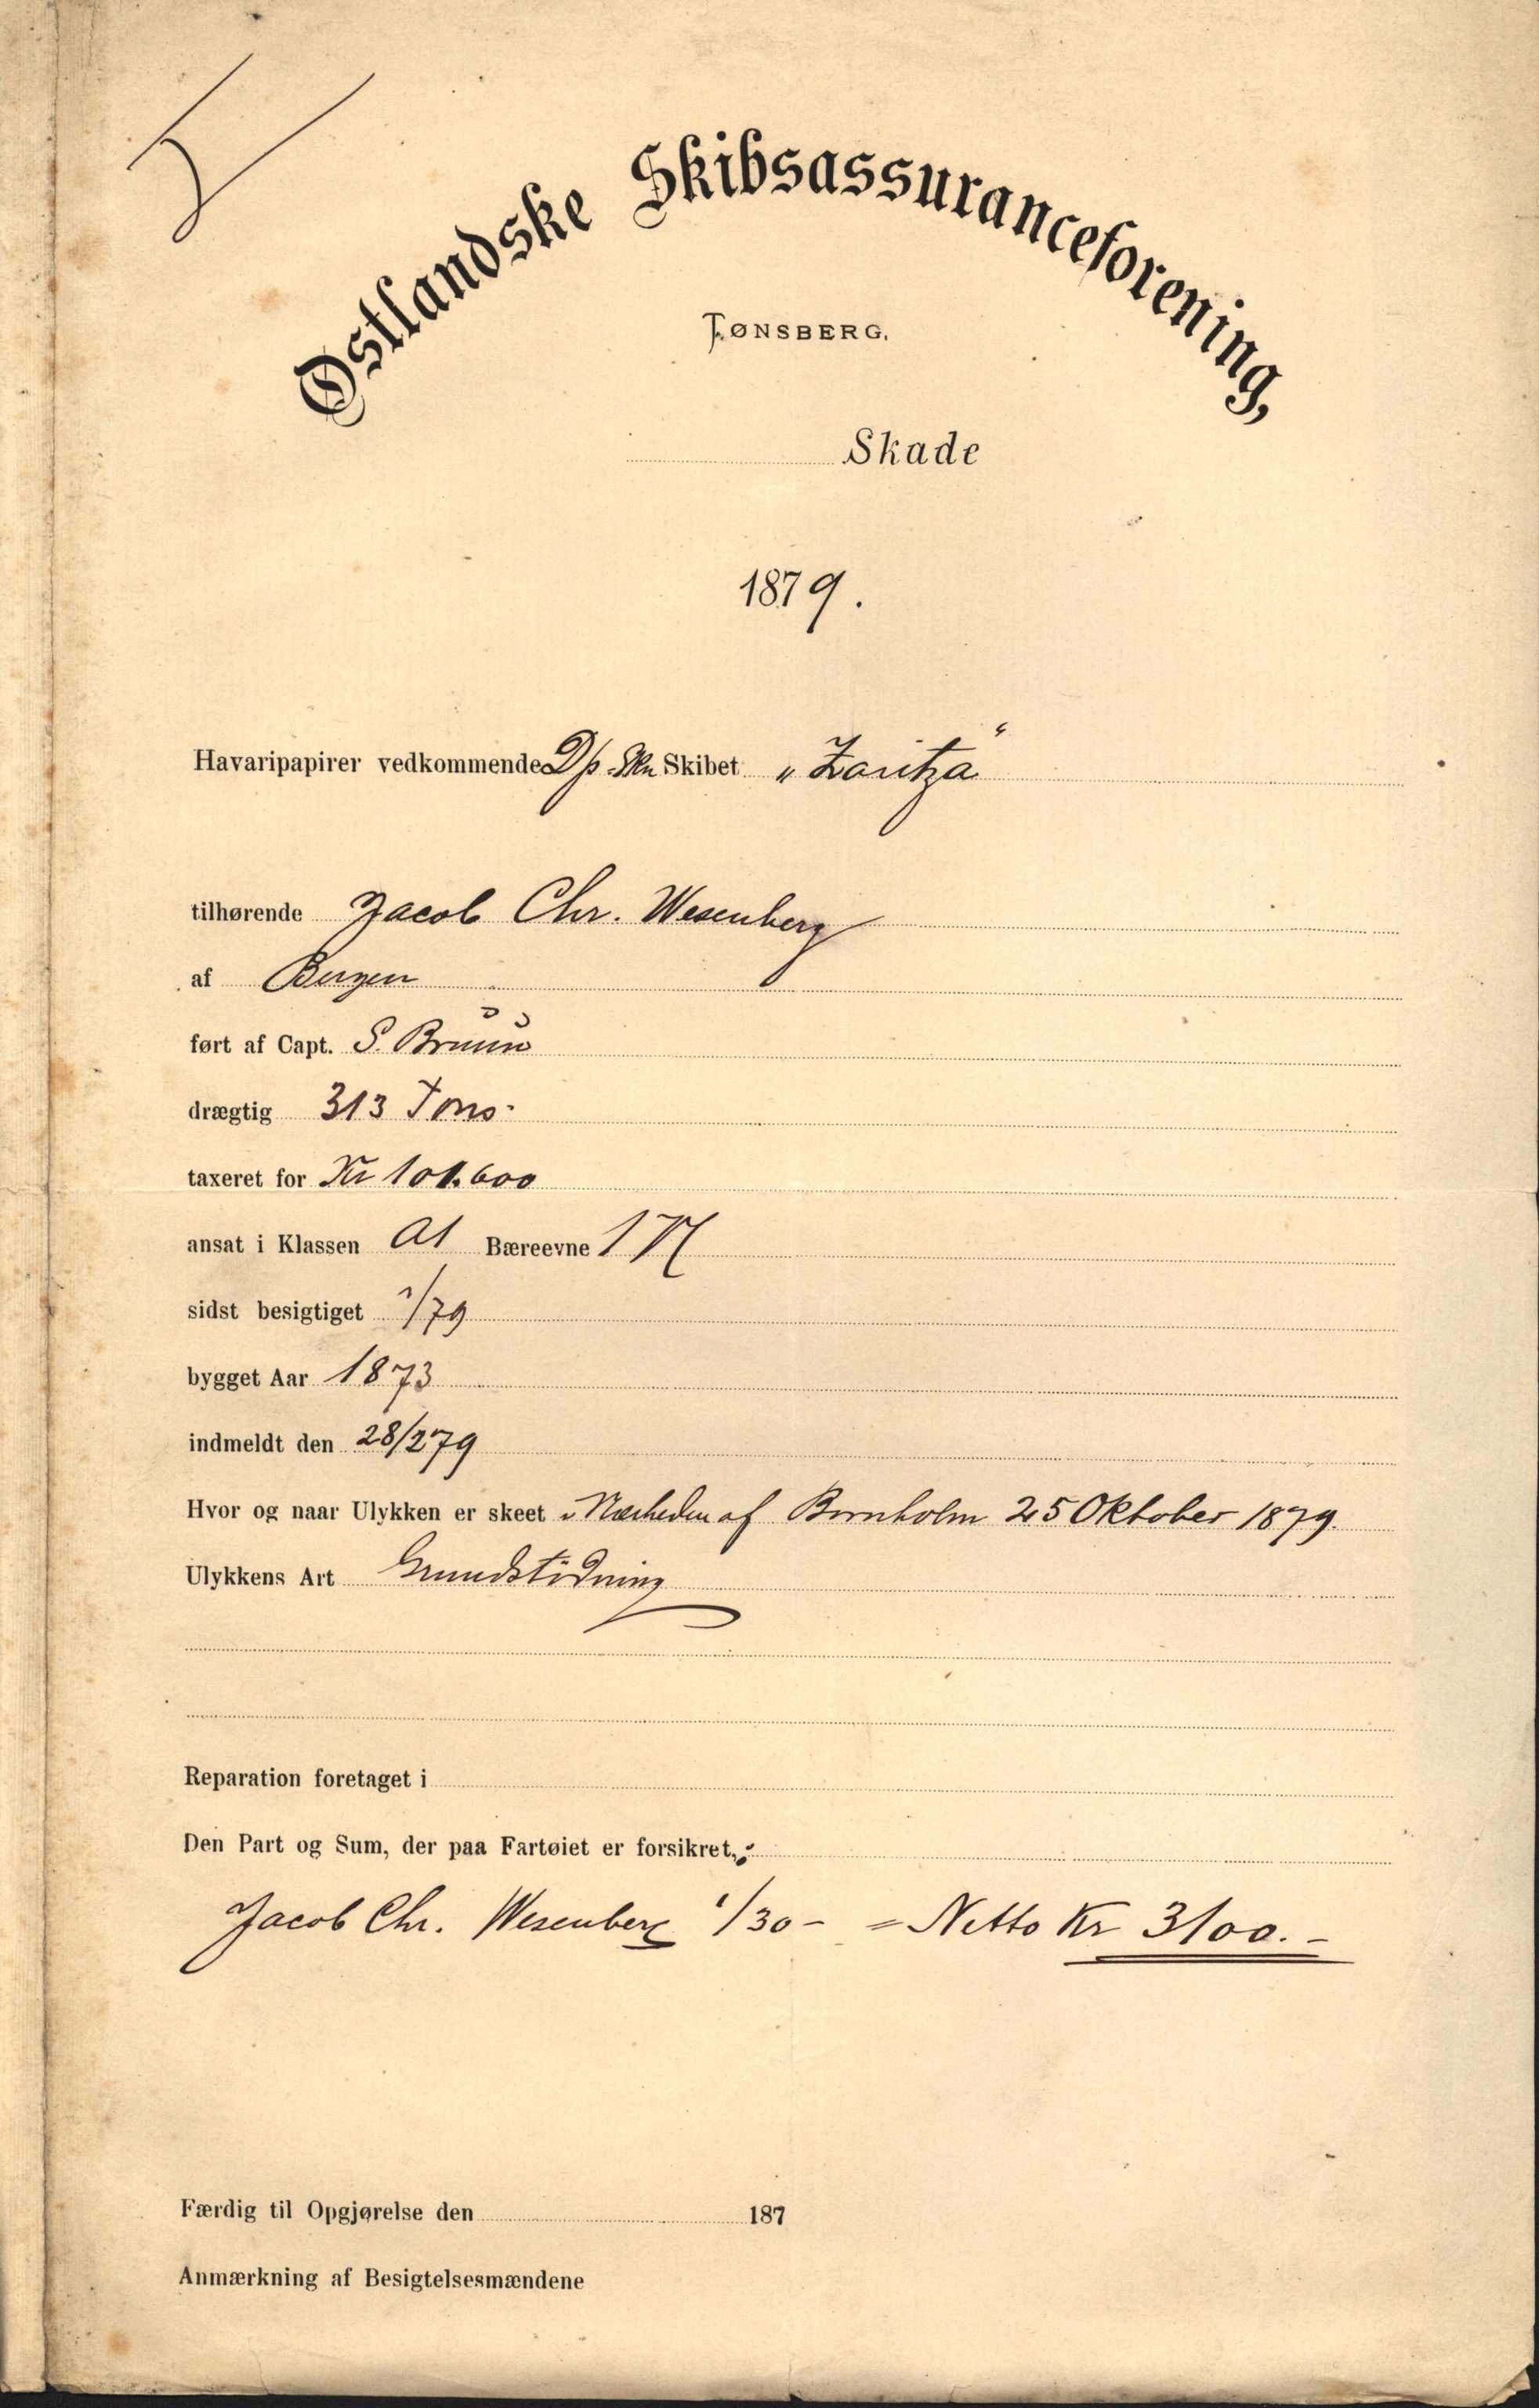 Østlandske Skibsassuranceforening,
TØNSBERG.
Skade
1879.
Havaripapirer vedkommende Dp. Skn Skibet „Zaritza“
tilhørende Jacob Chr. Wesenberg
af Bergen
ført af Capt. S. Bruun
drægtig 313 Tons.
taxeret for Kr 101.600
ansat i Klassen A1 Bæreevne 1
sidst besigtiget /79
bygget Aar 1873
indmeldt den 28/2 79
Hvor og naar Ulykken er skeet i Nærheden af Bornholm 25 Oktober 1879.
Ulykkens Art Grundstødning
Reparation foretaget i
Den Part og Sum, der paa Fartøiet er forsikret,:
Jacob Chr. Wesenberg 1/30 – = Netto Kr 3100.–
Færdig til Opgjørelse den 187
Anmærkning af Besigtelsesmændene